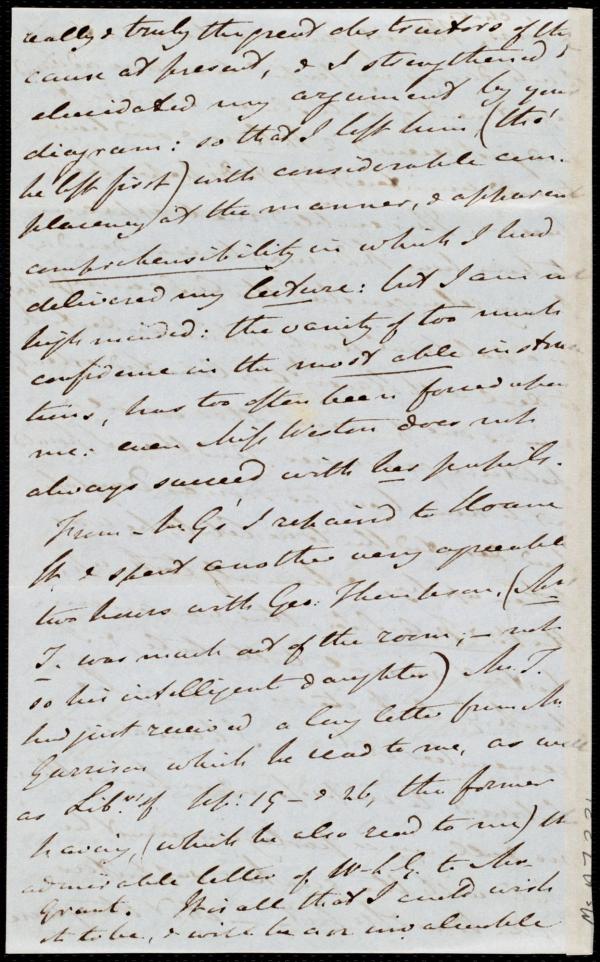 really & truly the great obstructors of the
cause at present, & I strengthened &
elucidated my argument by your
diagram: so that I left him, (tho'
he left first) with considerable com-
placency at the manner, & apparent
comprehensibility in which I had
delivered my lecture: but I am not
high minded: the vanity of too much
confidence in the most able instruc
tions, has too often been forced upon
me: even Miss Weston does not
always succeed with her pupils.
From Mr G's I repaired to Sloane
St & spent another very agreeable
two hours with Geo: Thompson, (Mrs
T. was much out of the room, – not
so his intelligent daughter) Mr. T.
had just received a long letter from Mr
Garrison which he read to me, as well
as Libr. of Sep: 19 – & 26, the former
having, (which he also read to me) the
admirable letter of W.L.G. to Mr.
Grant. It is all that I could wish
it to be, & will be an invaluable
Ms. A.7.2.21